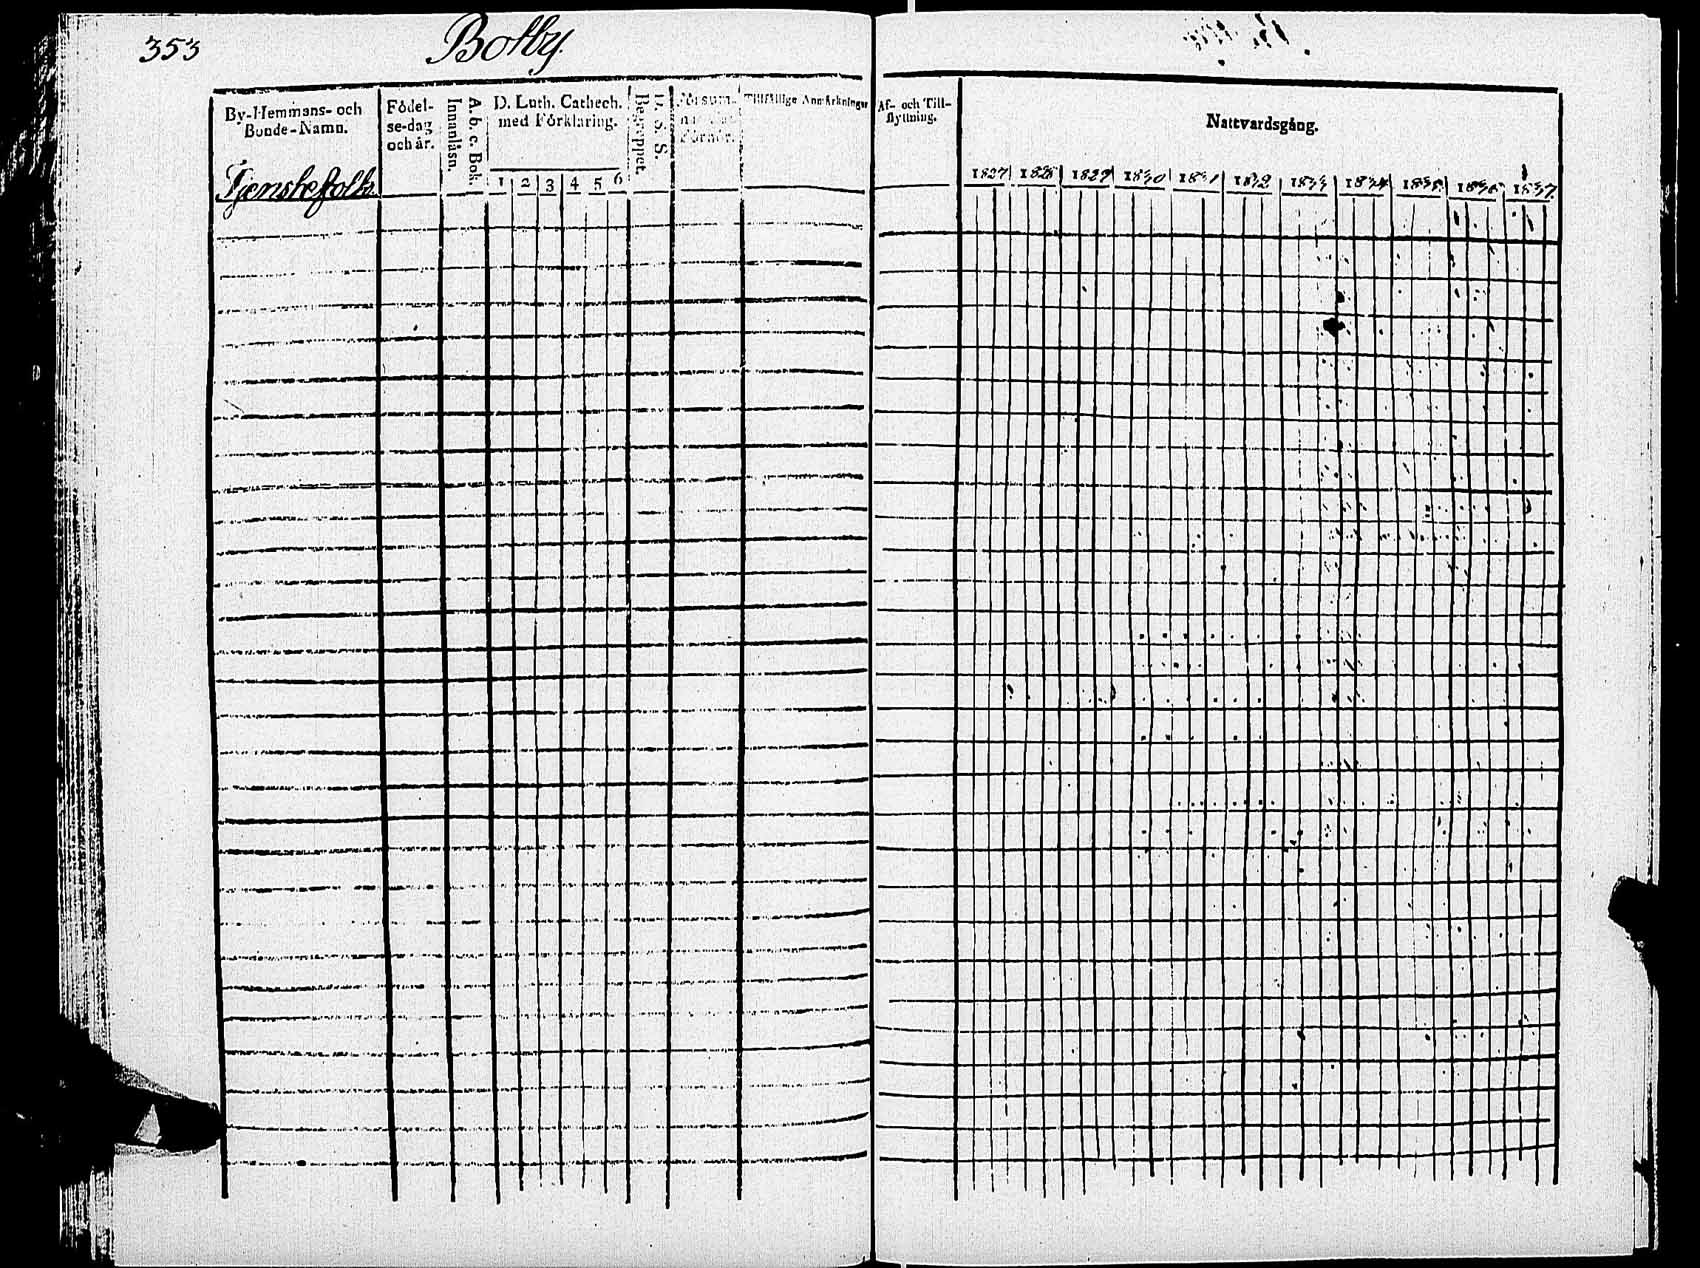 353
Botby.
By-Hemmans- och
Bonde-Namn.
Födel-
se-dag
och år.
A. b. c. Bok.
Innanläsn.
D. Luth. Cathech.
med Förklaring.
1 2 3 4 5 6
D. S. S.
Begreppet.
Försum-
Förhör.
Tillfällige Anmärkningar
Af- och Till-
flyttning.
Nattvardsgång.
1827 1828 1829 1830 1831 1832 1833 1834 1835 1836 1837.
Tjenstefolk